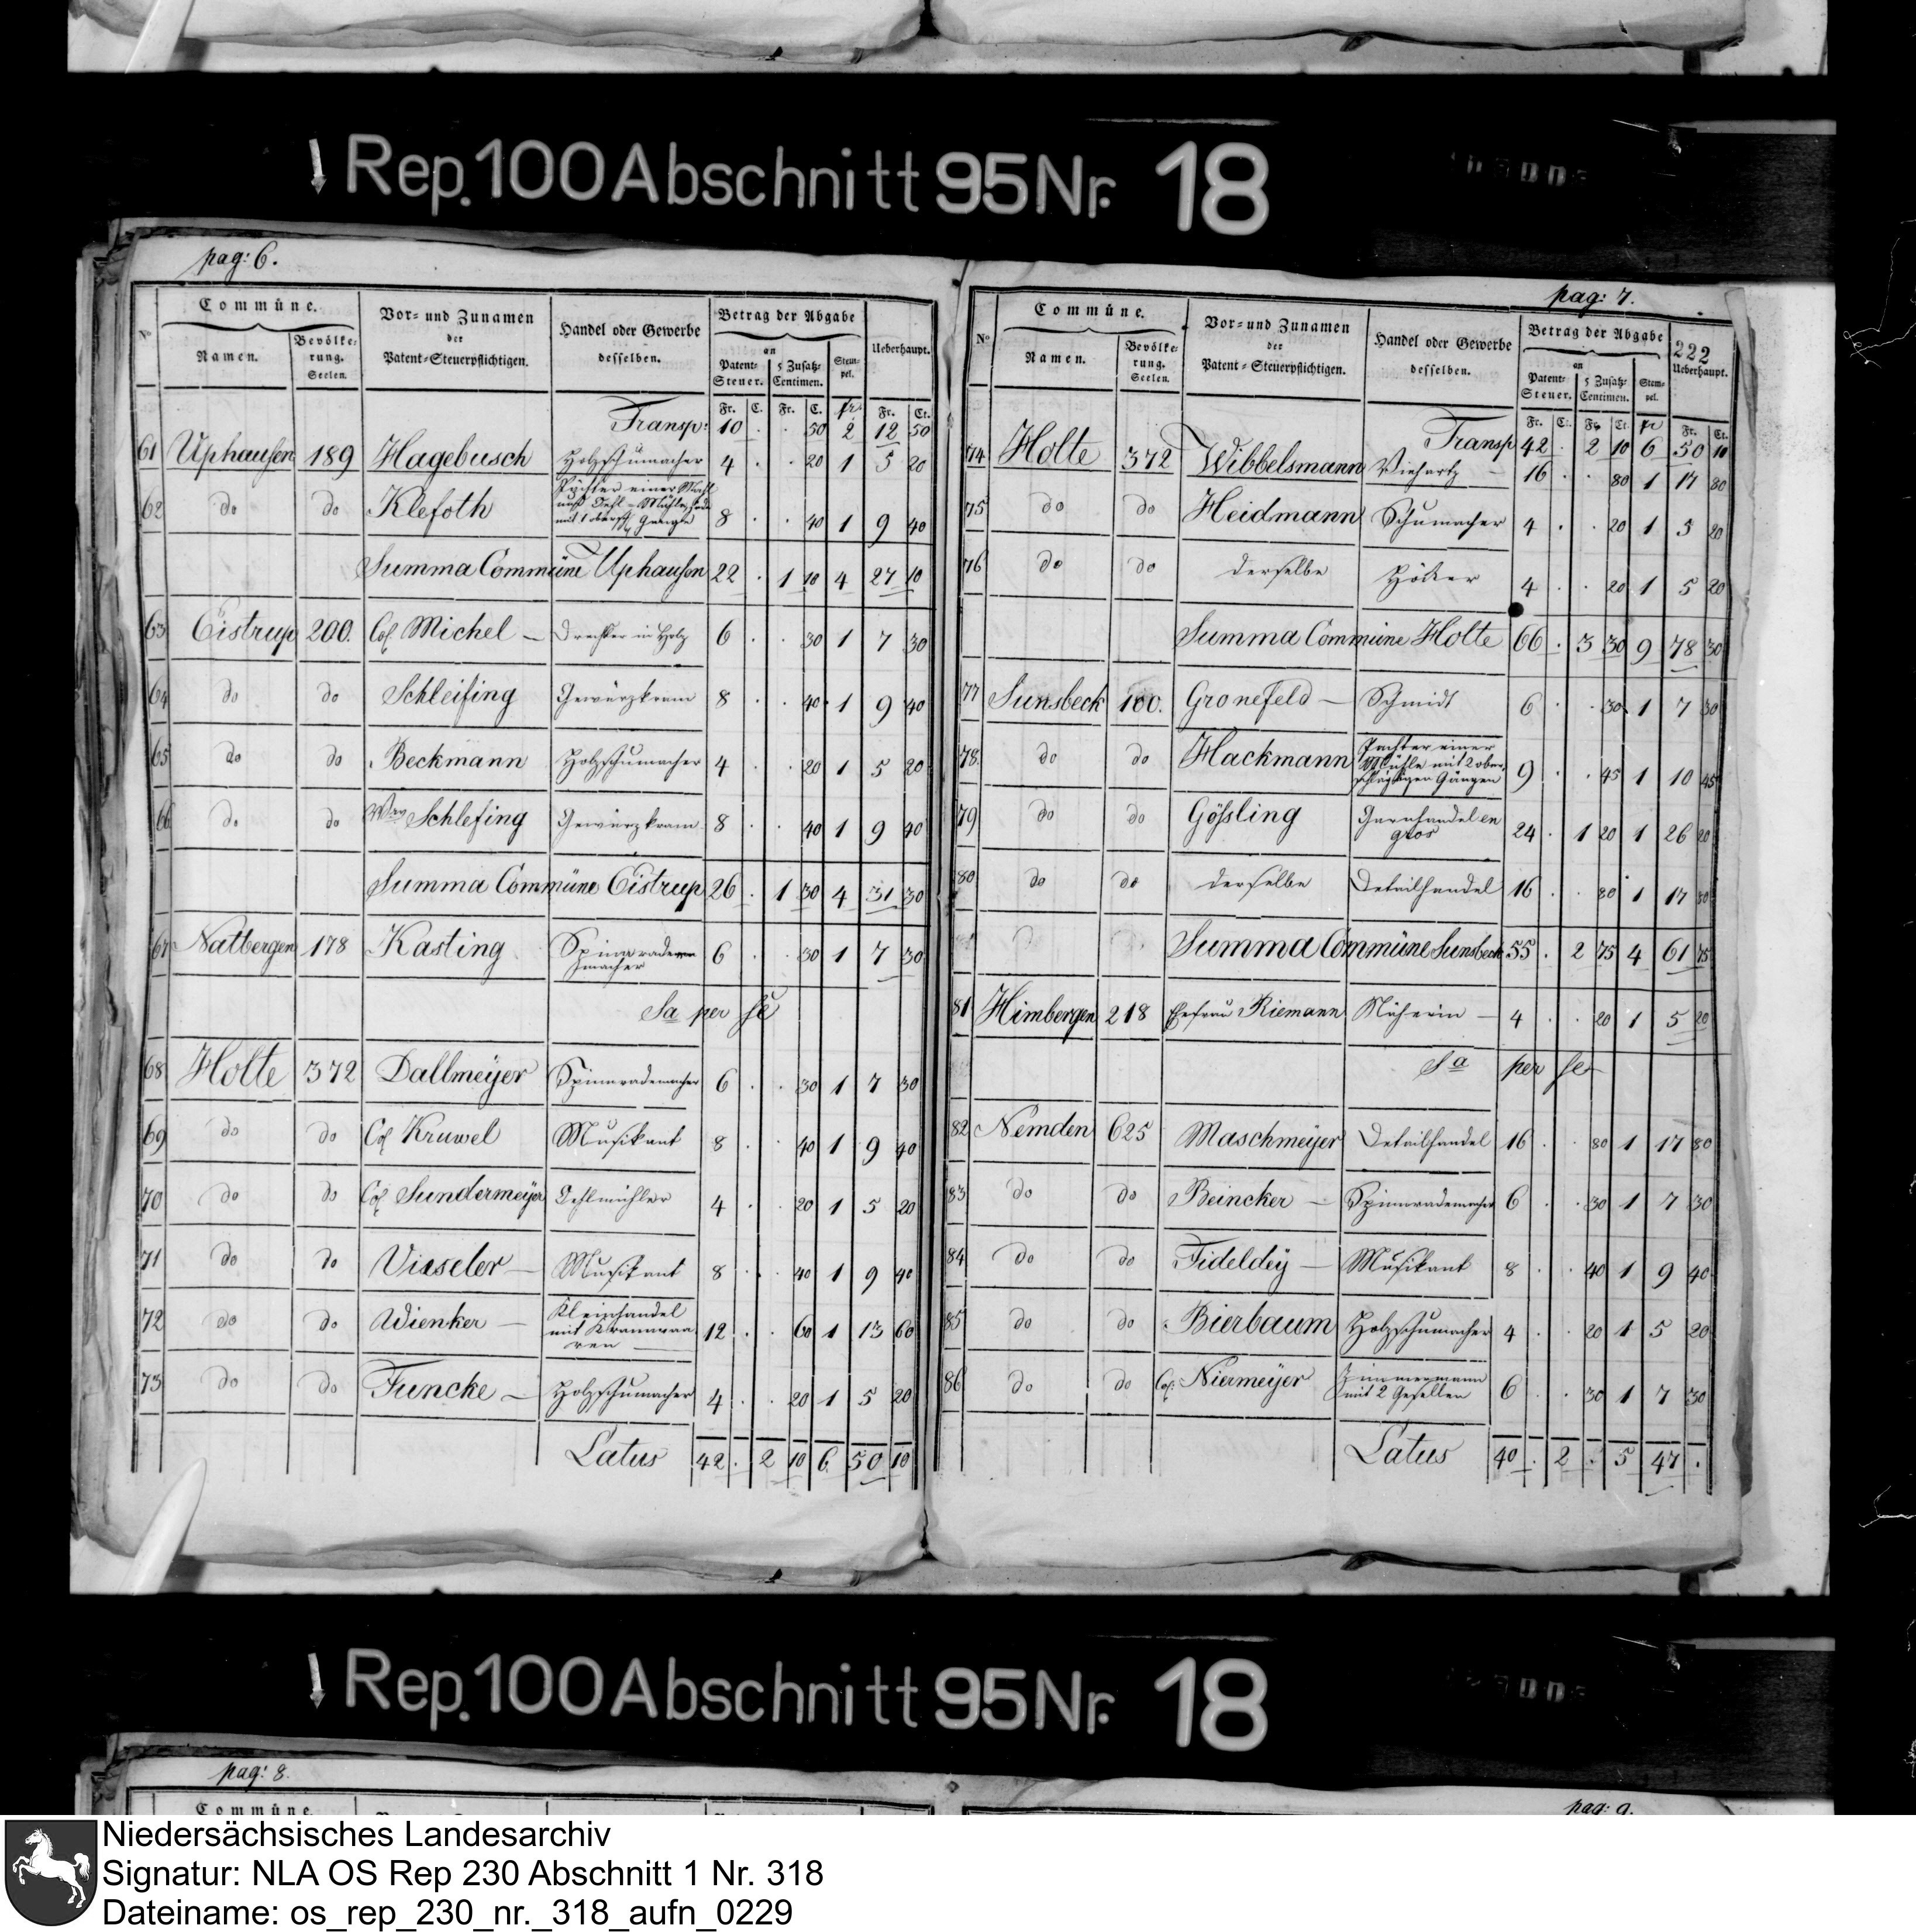 Rep. 100 Abschnitt 95 Nr. 18
pag: 6.
No Commüne. Vor- und Zunamen der Patent-Steuerpflichtigen. Handel oder Gewerbe desselben. Betrag der Abgabe Ueberhaupt.
Namen. Bevölkerung. Seelen. an Patent-Steuer. 5 Zusatz-Centimen. Stempel.
Fr. C. Fr. C. fr. Fr. Ct.
Transp: 10 . . 50 2 12 50
61 Uphausen 189 Hagebusch Holzschumacher 4 . . 20 1 5 20
62 do do Klefoth Pächter einer 8 . . 40 1 9 40
Summa Commüne Uphausen 22 . 1 10 4 27 10
63 Eistrup 200. Col Michel – Drechsler in Holz 6 . . 30 1 7 30
64 do do Schleifing Gewürzkram 8 . . 40 1 9 40
65 do do Beckmann Holzschumacher 4 . . 20 1 5 20
66 do do Wwe Schlefing Gewürzkram 8 . . 40 1 9 40
Summa Commüne Eistrup 26 . 1 30 4 31 30
67 Natbergen 178 Kasting Spinnrademacher 6 . . 30 1 7 30
Sa per se
68 Holte 372 Dallmeÿer Spinnrademacher 6 . . 30 1 7 30
69 do do Col Kruwel Musikant 8 . . 40 1 9 40
70 do do Col Sundermeÿer Oehlmühler 4 . . 20 1 5 20
71 do do Visseler – Musikant 8 . . 40 1 9 40
72 do do Wienker – Kleinhandel mit Kramwaaren 12 . . 60 1 13 60
73 do do Funcke – Holzschumacher 4 . . 20 1 5 20
Latus 42 . 2 10 6 50 10
pag: 7.
222
No Commüne. Vor- und Zunamen der Patent-Steuerpflichtigen. Handel oder Gewerbe desselben. Betrag der Abgabe Ueberhaupt.
Namen. Bevölkerung. Seelen. an Patent-Steuer. 5 Zusatz-Centimen. Stempel.
Fr. Ct. Fr. Ct. fr Fr. Ct.
Transp 42 . 2 10 6 50 10
74 Holte 372 Wibbelsmann Viehartz – 16 . . 80 1 17 80
75 do do Heidmann Schumacher 4 . . 20 1 5 20
76 do do derselbe Höcker 4 . . 20 1 5 20
Summa Commüne Holte 66 . 3 30 9 78 30
77 Sunsbeck 100. Gronefeld – Schmidt 6 . . 30 1 7 30
78. do do Hackmann Pachter einer Mühle mit 2 oberschlägtigen Gängen 9 . . 45 1 10 45
79 do do Gößling Garnhandel en gros 24 . 1 20 1 26 20
80 do do derselbe Detailhandel 16 . . 80 1 17 80
Summa Commüne Sunsbeck 55 . 2 75 4 61 75
81 Himbergen 218 Ehefrau Riemann Näherin – 4 . . 20 1 5 20
Sa per se
82 Nemden 625 Maschmeÿer Detailhandel 16 . . 80 1 17 80
83 do do Beincker – Spinnrademacher 6 . . 30 1 7 30
84 do do Fideldeÿ – Musikant 8 . . 40 1 9 40
85 do do Bierbaum Holzschumacher 4 . . 20 1 5 20
86 do do Col. Niermeÿer Zimmermann mit 2 Gesellen 6 . . 30 1 7 30
Latus 40 . 2 . 5 47 .
Rep. 100 Abschnitt 95 Nr. 18
pag: 8.
Commüne.
pag: 9.
Niedersächsisches Landesarchiv
Signatur: NLA OS Rep 230 Abschnitt 1 Nr. 318
Dateiname: os_rep_230_nr._318_aufn_0229